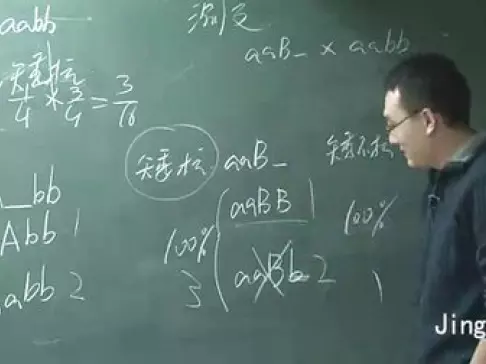 aabb
测交
aaB_ × aabb
矮抗
1/4 × 3/4 = 3/16
矮抗 aaB_
矮不抗
_bb
aaBB 1
Abb 1
100%
100%
aaBb 2
abb 2
3
1
Jing